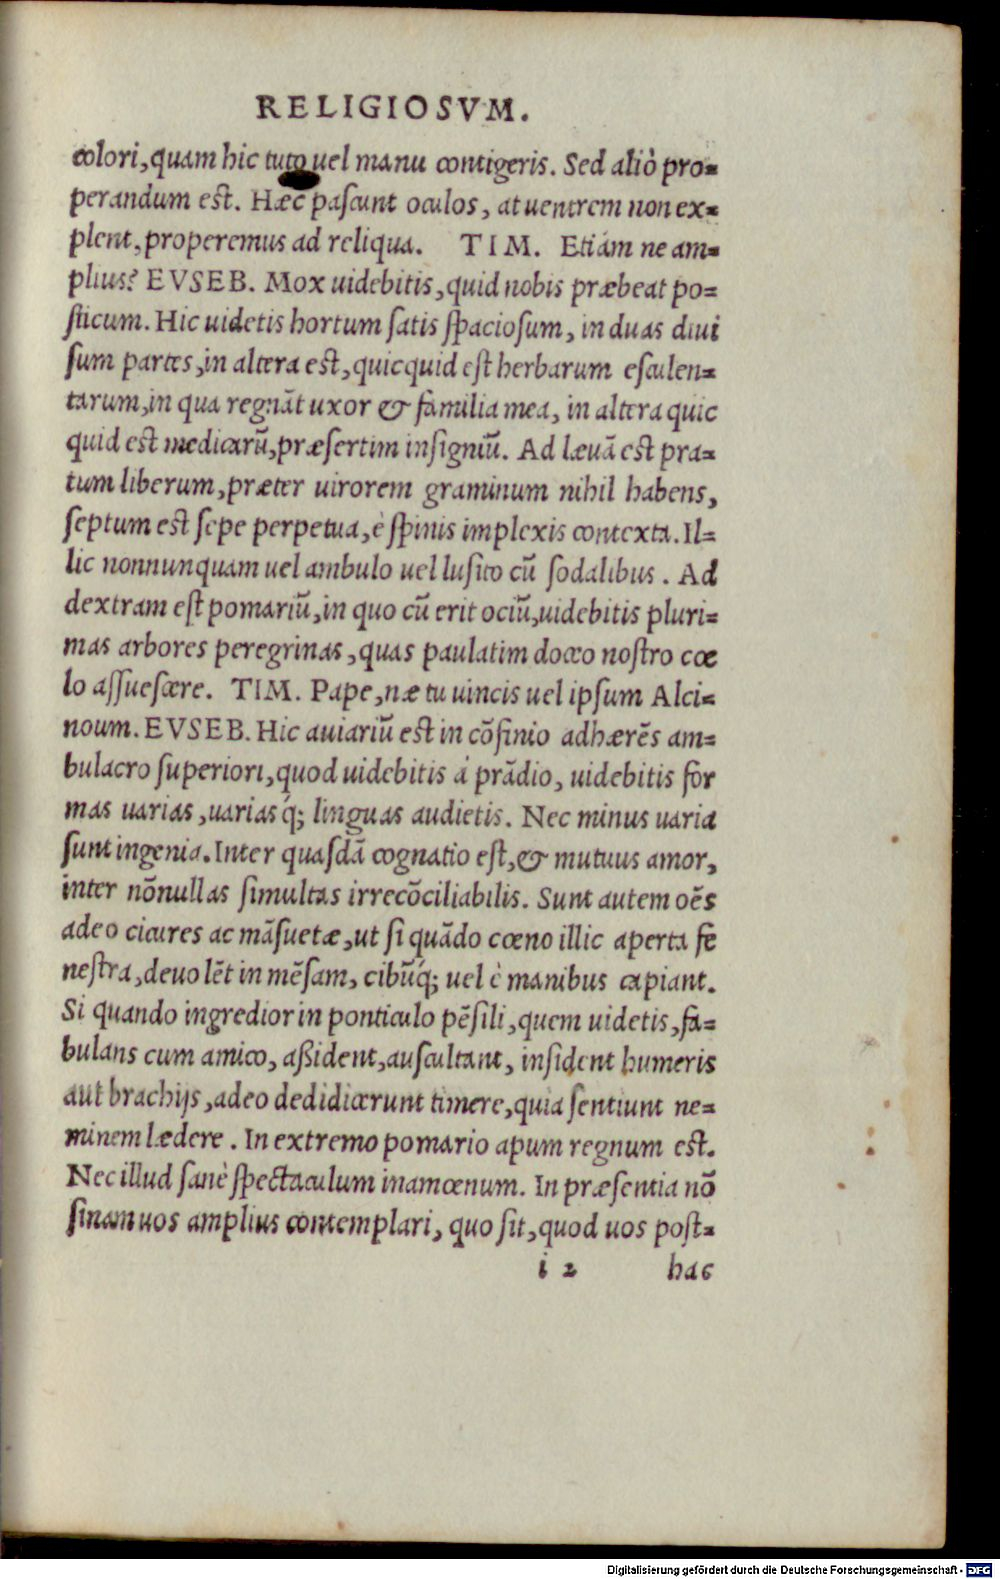 RELIGIOSVM.
colori, quam hic tuto uel manu contigeris. Sed aliò pro=
perandum est. Hæc pascunt oculos, at uentrem non ex=
plent, properemus ad reliqua. TIM. Etiam ne am=
plius? EVSEB. Mox uidebitis, quid nobis præbeat po=
sticum. Hic uidetis hortum satis spaciosum, in duas diui
sum partes, in altera est, quicquid est herbarum esculen=
tarum, in qua regnãt uxor & familia mea, in altera quic
quid est medicarũ, præsertim insigniũ. Ad læuã est pra=
tum liberum, præter uirorem graminum nihil habens,
septum est sepe perpetua, è spinis implexis contexta. Il=
lic nonnunquam uel ambulo uel lusito cũ sodalibus. Ad
dextram est pomariũ, in quo cũ erit ociũ, uidebitis pluri=
mas arbores peregrinas, quas paulatim doceo nostro cœ
lo assuescere. TIM. Pape, næ tu uincis uel ipsum Alci=
noum. EVSEB. Hic auiariũ est in cõfinio adhærẽs am=
bulacro superiori, quod uidebitis á prãdio, uidebitis for
mas uarias, uariasq́; linguas audietis. Nec minus uaria
sunt ingenia. Inter quasdã cognatio est, & mutuus amor,
inter nõnullas simultas irrecõciliabilis. Sunt autem oẽs
adeo cicures ac mãsuetæ, ut si quãdo cœno illic aperta fe
nestra, deuolẽt in mẽsam, cibũq́; uel è manibus capiant.
Si quando ingredior in ponticulo pẽsili, quem uidetis, fa=
bulans cum amico, aßident, auscultant, insident humeris
aut brachijs, adeo dedidicerunt timere, quia sentiunt ne=
minem lædere. In extremo pomario apum regnum est.
Nec illud sanè spectaculum inamœnum. In præsentia nõ
sinam uos amplius contemplari, quo sit, quod uos post=
i 2 hac
Digitalisierung gefördert durch die Deutsche Forschungsgemeinschaft - DFG